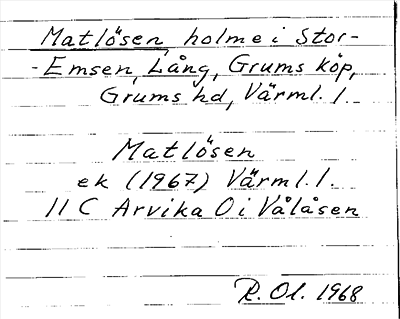 Matlösen, holme i Stor-
-Emsen, Lång, Grums köp,
Grums hd, Värml. l.
Matlösen
ek (1967) Värml. l.
11 C Arvika O i Vålåsen
R. Ol. 1968